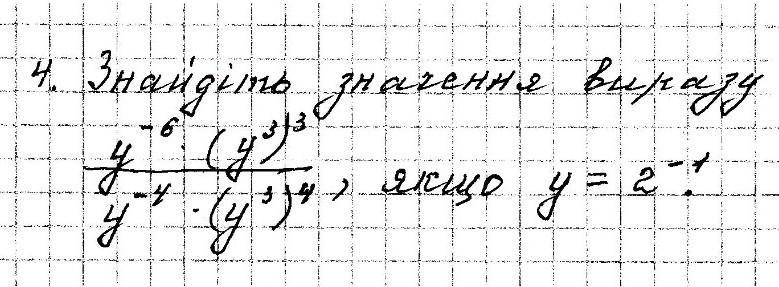 4. Знайдіть значення виразу
y⁻⁶ · (y³)³
y⁻⁴ · (y³)⁴ , якщо y = 2⁻¹.